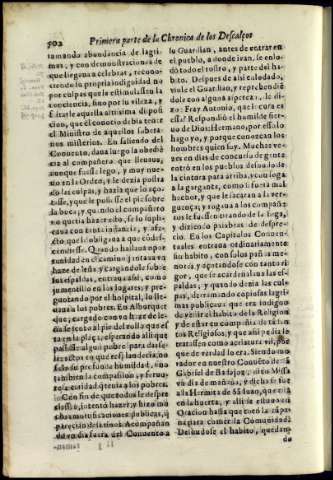 502
Primera parte de la Chronica de los Descalços
ramando abundancia de lagri-
mas, y con demonstraciones de
que llegava a celebrar, recono-
ciendo la propria indignidad no
por culpas que le estimulassen la
conciencia, sino por su vileza, y
frente aquella altissima disposi-
cion, que el conocia debia tener
el Ministro de aquellos sobera-
nos misterios. En saliendo del
Convento, dava luego la obedien-
cia al compañero que llevava,
aunque fuesse lego, y muy nue-
vo en la Orden, y se dezia postra-
do las culpas, y hazia que lo aço-
tasse, y que le pusiesse el pie sobre
la boca; y quando el compañero
no queria hazer esto, se lo suplica-
va con tanta instancia, y afe-
cto, que le obligava a que condes-
cendiesse. Quando hallava opor-
nidad en el camino juntava vn
haze de leña, y cargandole sobre
sus espaldas, entrava assi, como
jumentillo en los lugares, y pre-
guntando por el hospital, lo lle-
vava a los pobres. En Alburquer-
que, cargado con vn haze de le-
ña se sento al pie del rollo que es-
ta en la plaça, esperando alli que
passasse algun pobre para darse-
la: actos en que resplandecia, no
solo su profunda humildad, sino
tambien la compassion, y fervo-
rosa caridad q tenia a los pobres.
Con fin de que todos le despre-
ciassen, intentó hazer, y hizo mu-
chas mortificaciones publicas, q
parecian desatinos. Acompañan-
do vn dia fuera del Convento a
su Guardian, antes de entrar en
el pueblo, a donde ivan, se enlo-
dó todo el rostro, y parte del ha-
bito. Despues de assi enlodado,
viole el Guardian, y reprehendió-
dole con alguna aspereza, le di-
xo: Fray Antonio, que locura es
essa? Respondió el humilde sier-
vo de Dios: Hermano, por esso lo
hago yo, y porque conozcan los
hombres quien soy. Muchas ve-
zes en dias de concurso de gente
entró en los pueblos desnudo de
la cintura para arriba, y con soga
a la garganta, como si fuera mal-
hechor, y que le sacaran a la ver-
guença; y rogava a los compañe-
ros le fuessen tirando de la soga,
y diziendo palabras de despre-
cio. En los Capitulos Conven-
tuales entrava ordinariamente
sin habito, con solos paños me-
nores, y açotandose con tanto ri-
gor, que se acardenalava las es-
paldas, y quando dezia las cul-
pas, derramando copiosas lagri-
mas publicava que era indigno
de vestir el habito de la Religion
y de estar en compañia de tã san-
tos Religiosos, y que assi pedia le
tratassen como a criatura vil, por
que de verdad lo era. Siendo mo-
rador en nuestro Convēto de S.
Gabriel de Badajoz, dixo Missa
vn dia de mañana, y dicha se fue
a la Hermita de S. Juan, que está
en la huerta, y alli se estuvo en
Oracion hasta que tocó la cãpa-
na para comer la Comunidad.
Desnudose el habito, quedan-
do